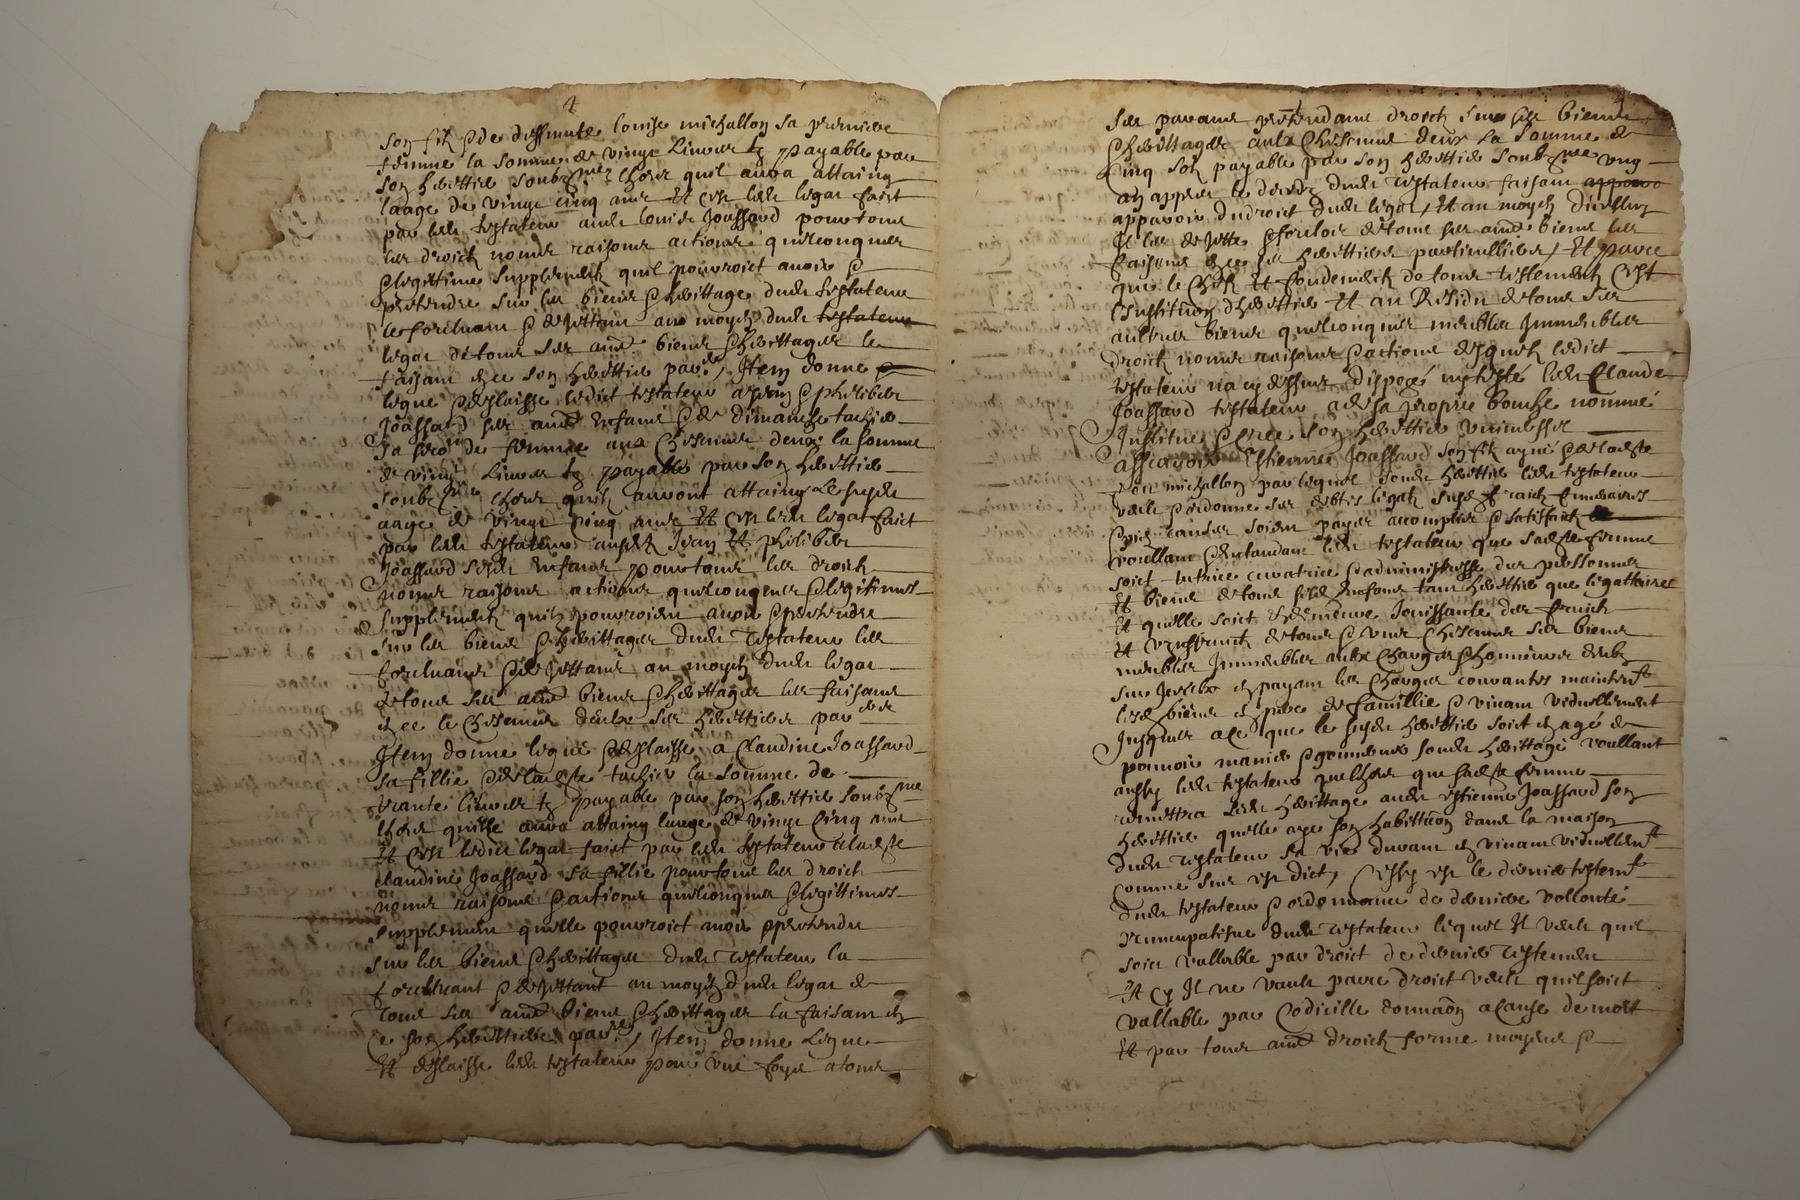 4
son filz & de deffuncte Louise michallon sa premiere
femme la somme de vingt Livres tz payable par
son heritier soubznomé lhors quil aura attaing
laage de vingt cinq ans Et c'est ledit legat faict
par ledit testateur audit Louis Joassard pour tous
ses droictz noms raisons actions quelconques
& legitime supplement quil pourroict avoir &
pretendre sur les biens & herittage dudit testateur
le forcluant & dejettant au moyen dudit testateur
legat de tous ses autres biens & herittages le
faisant en ce son heritier par Item donne &
legue & deslaisse ledict testateur a Jean & philiber
Joassard ses autres enfans & de dimanche tachier
sa seconde femme aux Chescung deux la somme
de vingt Livres tz payable par son heritier
soubznomé lhors quilz auront attaing le susdit
aage de vingt cinq ans Et c'est ledit legat faict
par ledit testateur ausditz Jean Et philiber
Joassard sesditz enfans pour tous les droictz
noms raisons actions quelconques & legitimes
supplementz quilz pourroient avoir & pretendre
sur les biens & herittages dudit testateur les
forcluant & dejettant au moyen dudit legat
de tous ses autres biens & herittages les faisant
en ce le Chescung deulx ses heritiers par
Item donne legue & deslaisse a Claudine Joassard
sa fillie & de ladite tachier la somme de
trante livres tz payable par son heritier soubznomé
lhors quelle aura attaing laage de vingt Cinq ans
Et c'est ledict legat faict par ledit testateur a ladite
claudine Joassard sa fillie pour tous les droictz
noms raisons & actions quelconques & legittimes
supplement quelle pourroict avoir & pretendre
sur les biens & herittages dudit testateur la
forcluant & dejettant au moyen dudit legat de
tous ses autres biens & herittages la faisant en
ce son heritiere par Item donne Legue
Et deslaisse ledit testateur pour une foys a tous
ses parans pretendans droict sur ses biens
& herittages aulx Chescung deux la somme de
Cinq solz payable par son heritier soubznomé ung
an appres le deces dudit testateur faisant
apparoir du droict dudit legat, Et au moyen diceluy
Il les dejette & forclos de tous ses autres biens les
faisans en ce ses heritiers particulliers, Et parce
que le Chefz Et fondement de tous testementz Cest
Linstitution dheritier Et au Residu de tous ses
aultres biens quelconques meubles Immeubles
droictz noms raisons & actions desquelz ledict
testateur na cy dessus disposé ny testé ledit Claude
Joassard testateur a de sa propre bouche nommé
Institue & cree son heritier universel
asscavoir Estienne Joassard son filz ayné & de ladite
michallon par lequel sondit heritier ledit testateur
veult & ordonne ses debtes legatz fraictz funeraires
& pies causes soient payes accomplies & satisfaict
voullant & entandant ledit testateur que sadite femme
soict tutrice curatrice & administresse des personnes
Et biens de tous sesditz enfans tant heritier que legattaires
Et quelle soict & demeure Jouissante des fruictz
Et usuffruictz de tous & ung Chescung ses biens
meubles Immeubles aulx Charges & honneurs deubz
sur Iceulx en payant les Charges courantes maintenant
lesditz biens en pere de famillie & vivant viduellement
Jusques a ce que le susdit heritier soict en age de
pouvoir manier & gouverner sondit herittage voullant
aussy ledit testateur que lhors que sadite femme
remettra ledit herittage audit estienne Joassard son
heritier quelle aye son habitation dans la maison
dudit testateur sa vie durant en vivant viduellement
comme sus est dict, Cessy est le dernier testement
dudit testateur & ordonnance de derniere vollonté
nuncupatifve dudit testateur lequel Il veult quil
soict vallable par droict de dernier testement
Et cy Il ne vault par ce droict veult quil soict
vallable par Codicille donnaon a cause de mort
Et par tous autres droictz forme moyens &